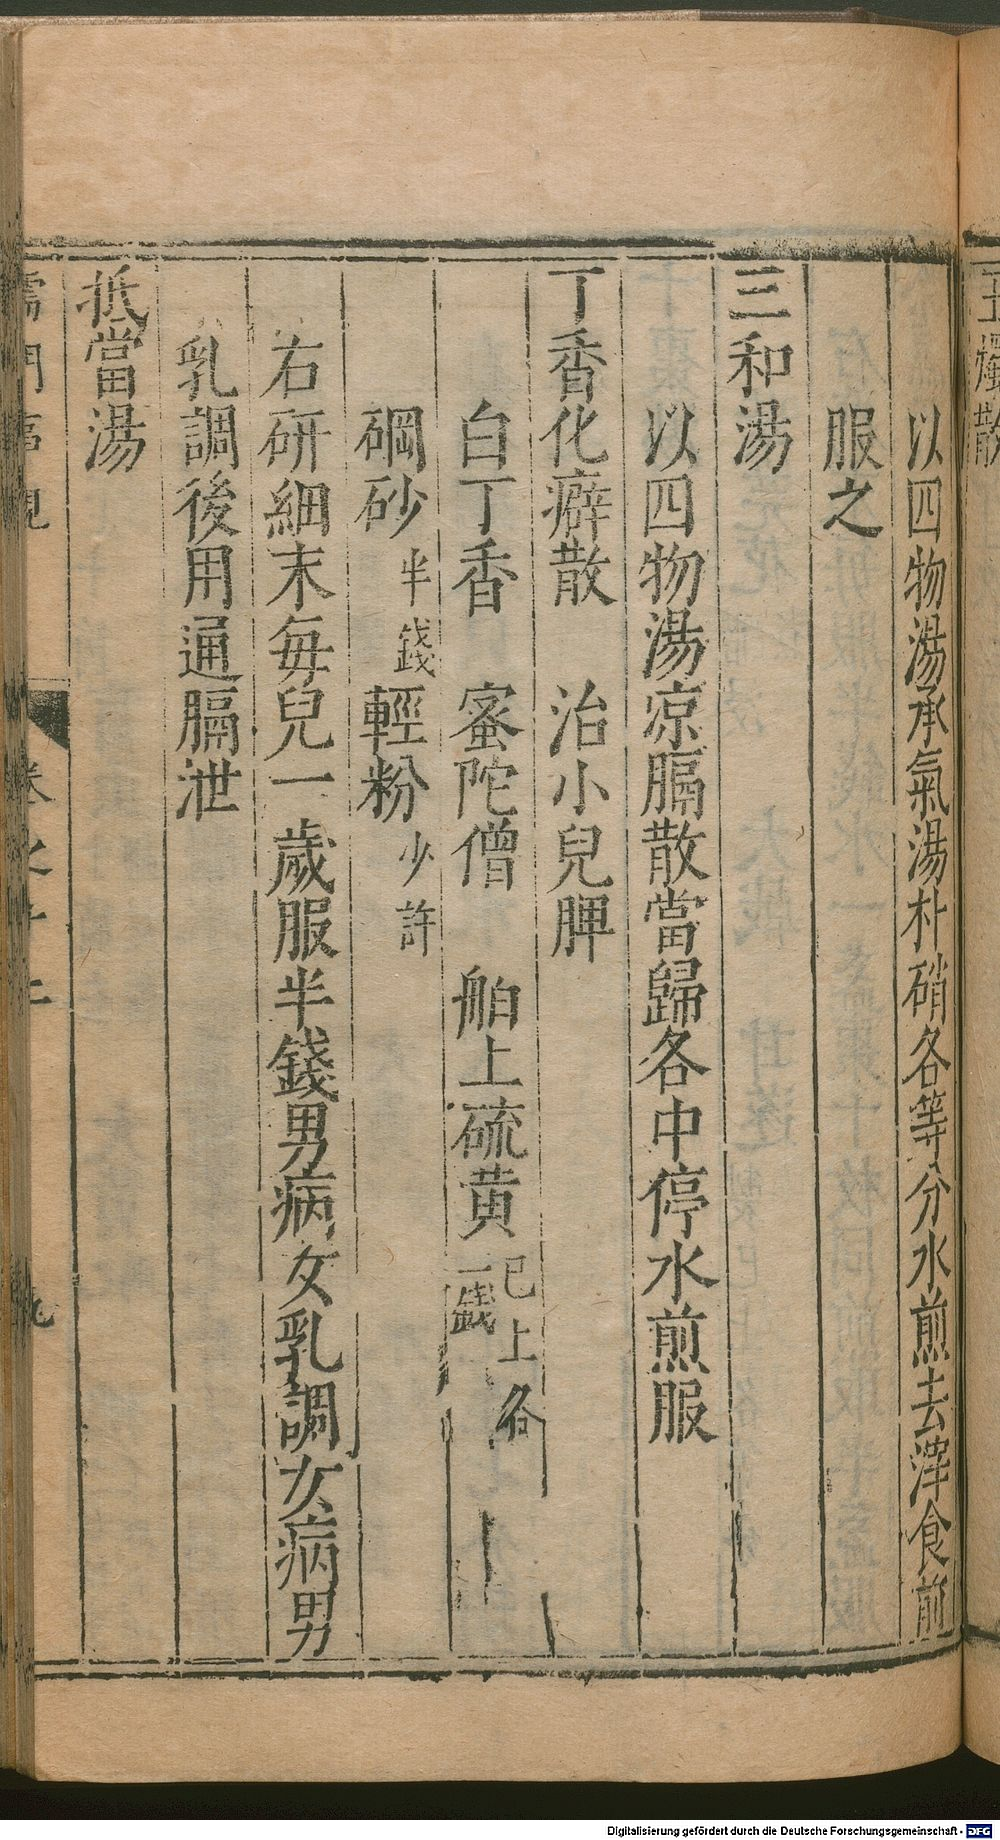 玉燭散
以四物湯承氣湯朴硝各等分水煎去滓食前
服之
三和湯
以四物湯凉膈散當歸各中停水煎服
丁香化癖散　治小兒脾
白丁香　蜜陀僧　舶上硫黄已上各一錢
硇砂半錢　輕粉少許
右研細末每兒一歲服半錢男病女乳調女病男
乳調後用通膈泄
抵當湯
儒門事親　卷之十二
Digitalisierung gefördert durch die Deutsche Forschungsgemeinschaft - DFG